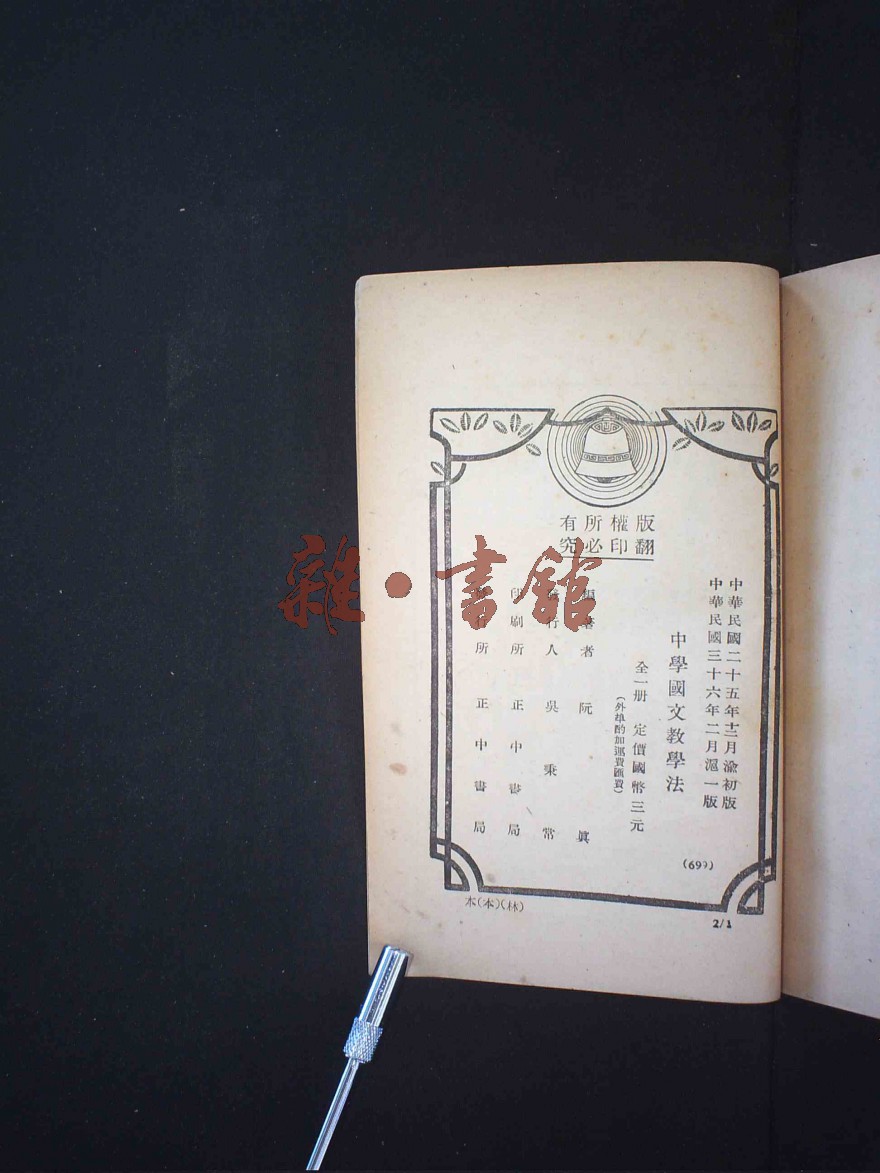 版權所有
翻印必究
中華民國二十五年十二月渝初版
中華民國三十六年二月滬一版
中學國文教學法
全一册 定價國幣三元
(外埠酌加運費匯費)
編著者 阮眞
發行人 吳秉常
印刷所 正中書局
發行所 正中書局
(699)
本(本)(林)
2/1
雜·書館